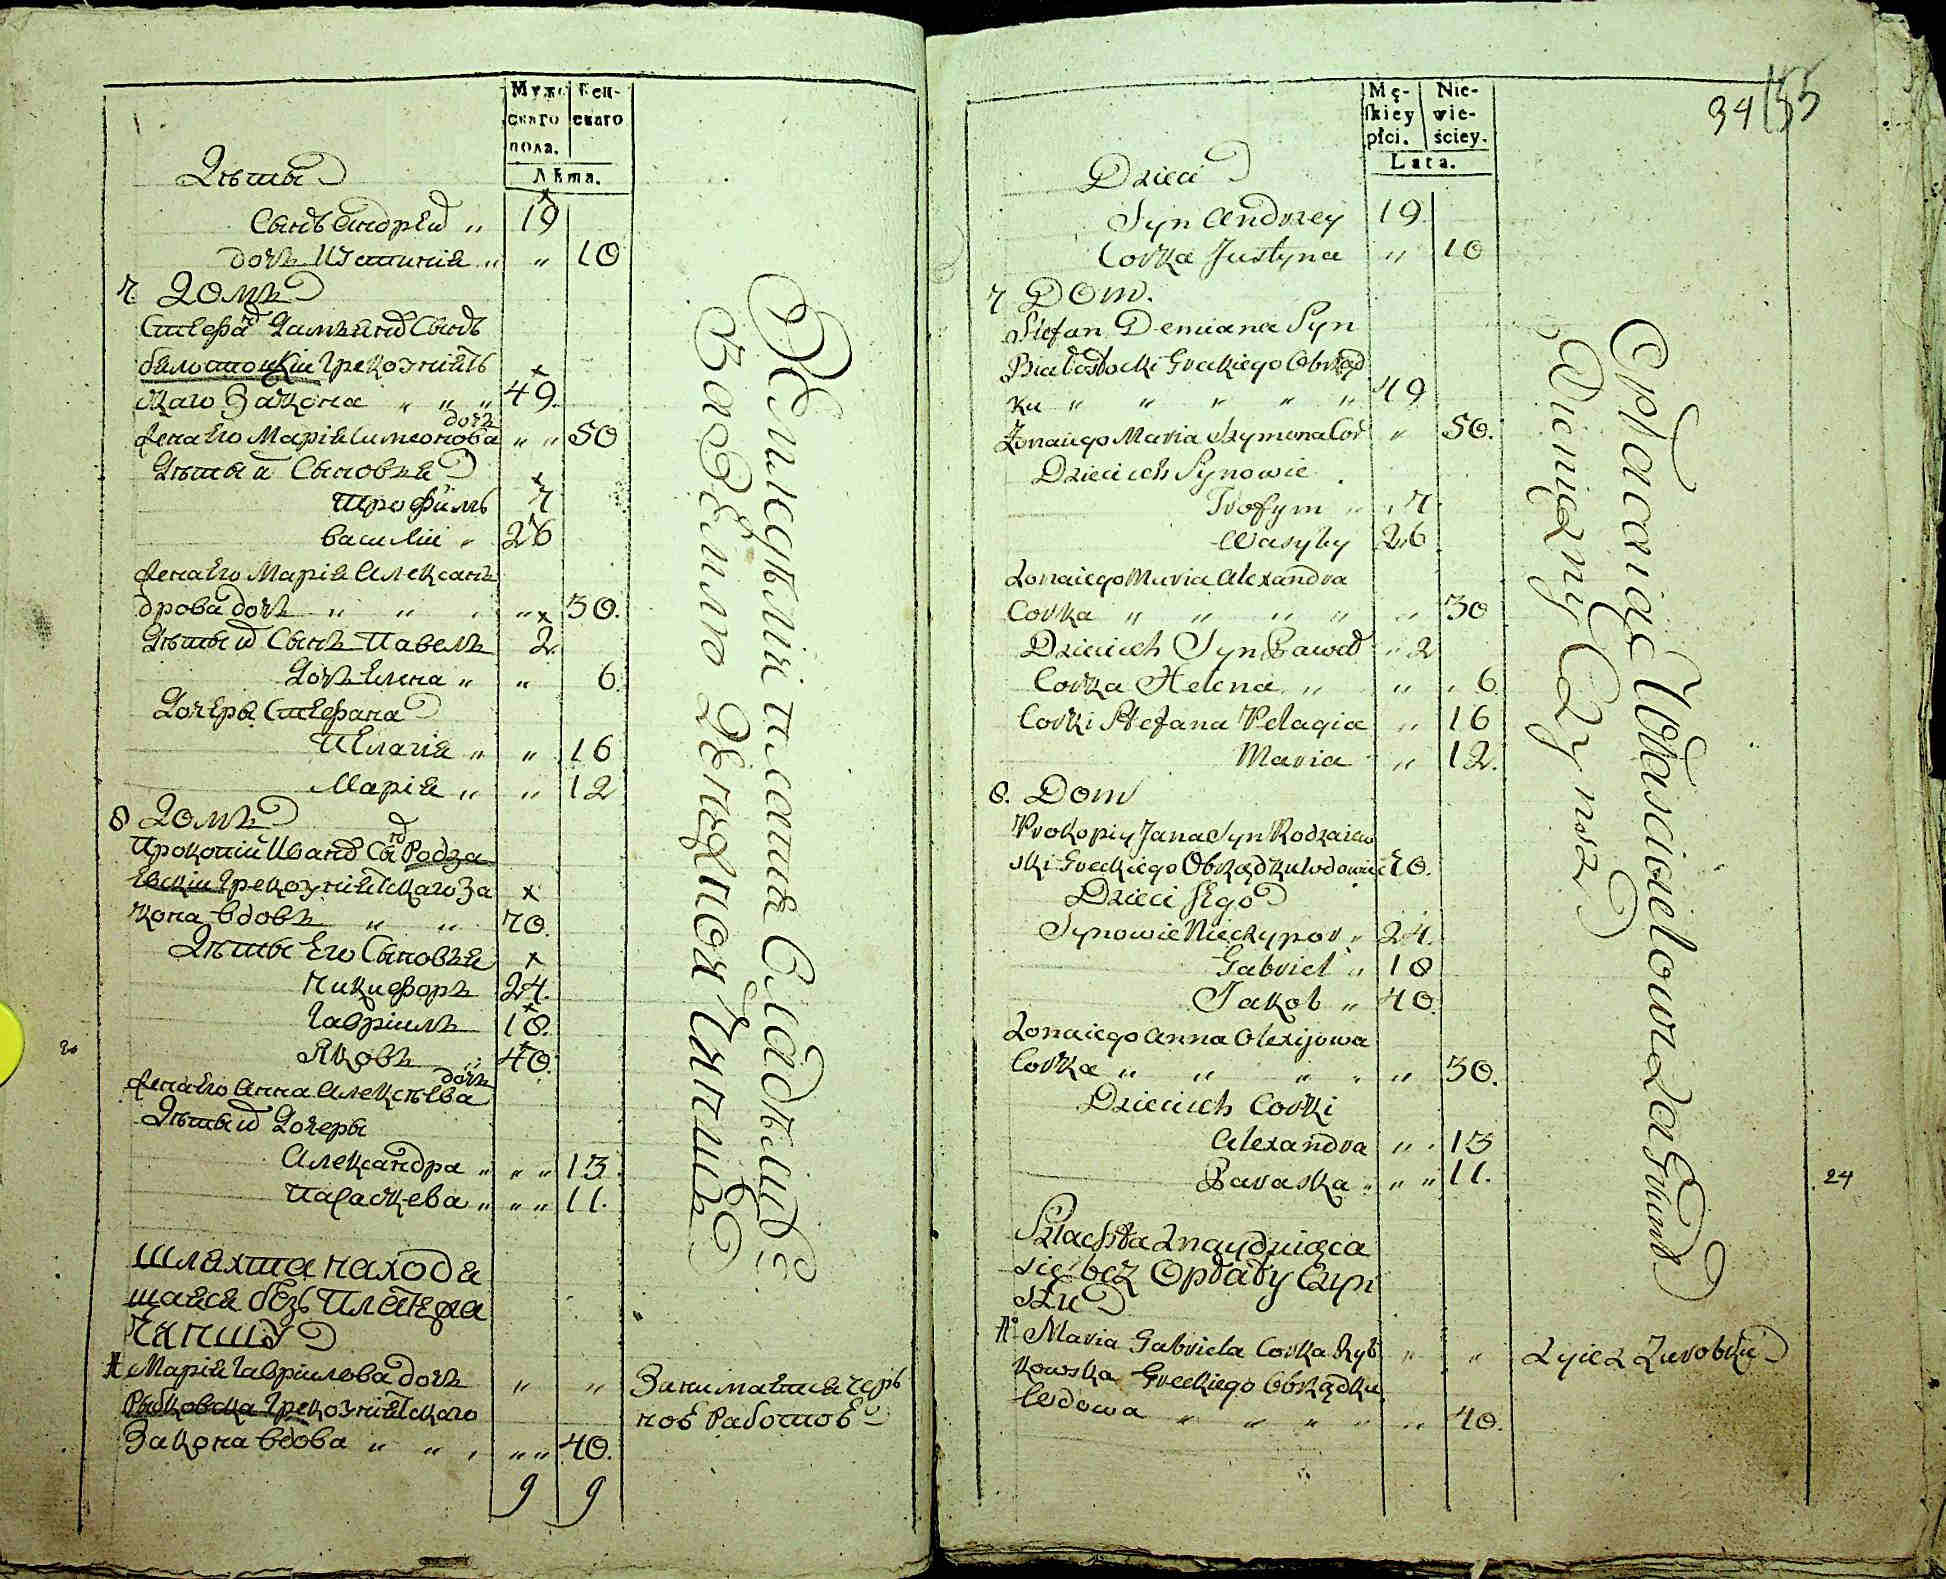 Мужескаго пола.
Женскаго
Лѣта.
Дѣты
Сынъ Андрей " 19
дочь Юстинія " " 10
7. Домъ
Стефанъ Дамьяновъ Сынъ
бялостоцкій Грекоуніятъ
скаго Закона " " " 49.
жена Его Марія Симеонова дочь " " 50
Дѣты и Сыновья
Трофимъ 7
василій " 26
жена Его Марія Александ
дрова дочь " " " " 30.
Дѣты Сынъ Павелъ 2.
Дочь Елена " " 6.
Дочеры Стефана
Пелагія " " 16
Марія " " 12
8 Домъ
Прокопій Ивановъ Сынъ Родза
евскій Грекоуніятскаго За
кона вдовъ " " 70.
Дѣты Его Сыновья
Никифоръ 24.
Гавріилъ 18.
Яковъ " 40.
жена Его Анна Алексѣева дочь
Дѣты Дочеры
Александра " " " 13.
Параскева " " " 11.
Шляхта находя
щаяся безъ Платежа
Чиншу
Марія Гавріилова дочь " "
Рыбковска Грекоуніятскаго
Закона вдова " " " " " 40.
9 9
Занимается
Męskiey płci.
Niewieściey.
Lata.
34
155
Dzieci
Syn Andrzey 19.
Corka Justyna " 10
7 Dom.
Stefan Demiana Syn
Białostocki Greckiego Obrząd
ku " " " " " 49
Zona iego Maria Szymona Cor " 50.
Dzieci ich Synowie
Trofym " 7.
Wasyly 26
Zona iego Maria Alexandra
Corka " " " " " 30
Dzieci ich Syn Paweł " 2
Corka Helena " " " 6.
Corki Stefana Pelagia " 16
Maria " 12.
8. Dom
Prokopiy Jana Syn Rodzaiew
ski Greckiego Obrządku wdowiec 70.
Dzieci Jego
Synowie Nieczypor " 24.
Gabriel " 18
Jakob " 40.
Zona iego Anna Olexijowa
Corka " " " " " 30.
Dzieci ich Corki
Alexandra " " 13
Paraska " " " 11.
Szlachta znayduiąca
się bez Opłaty Czyn
szu
Maria Gabriela Corka Ryb " "
kowska Greckiego Obrządku
Wdowa " " " " " 40.
Opłacaiąc Włascicielowi za Grunt
Pieniężny Czynsz
Żyie z Zarobku
24